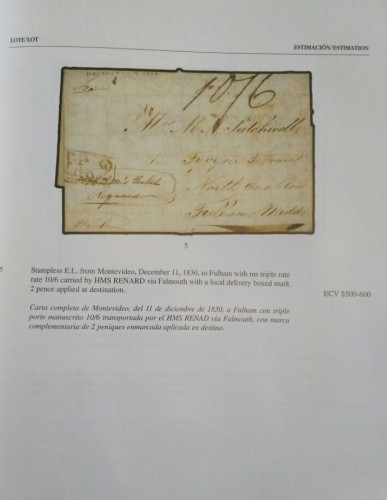 LOTE/LOT
ESTIMACIÓN/ESTIMATION
10/6
North End
Fulham Middx
5
5
Stampless E.L. from Montevideo, December 11, 1830, to Fulham with ms triple rate
rate 10/6 carried by HMS RENARD via Falmouth with a local delivery boxed mark
2 pence applied at destination.
ECV $500-600
Carta completa de Montevideo, del 11 de diciembre de 1830, a Fulham con triple
porte manuscrito 10/6 transportada por el HMS RENAD via Falmouth, con marca
complementaria de 2 peniques enmarcada aplicada en destino.